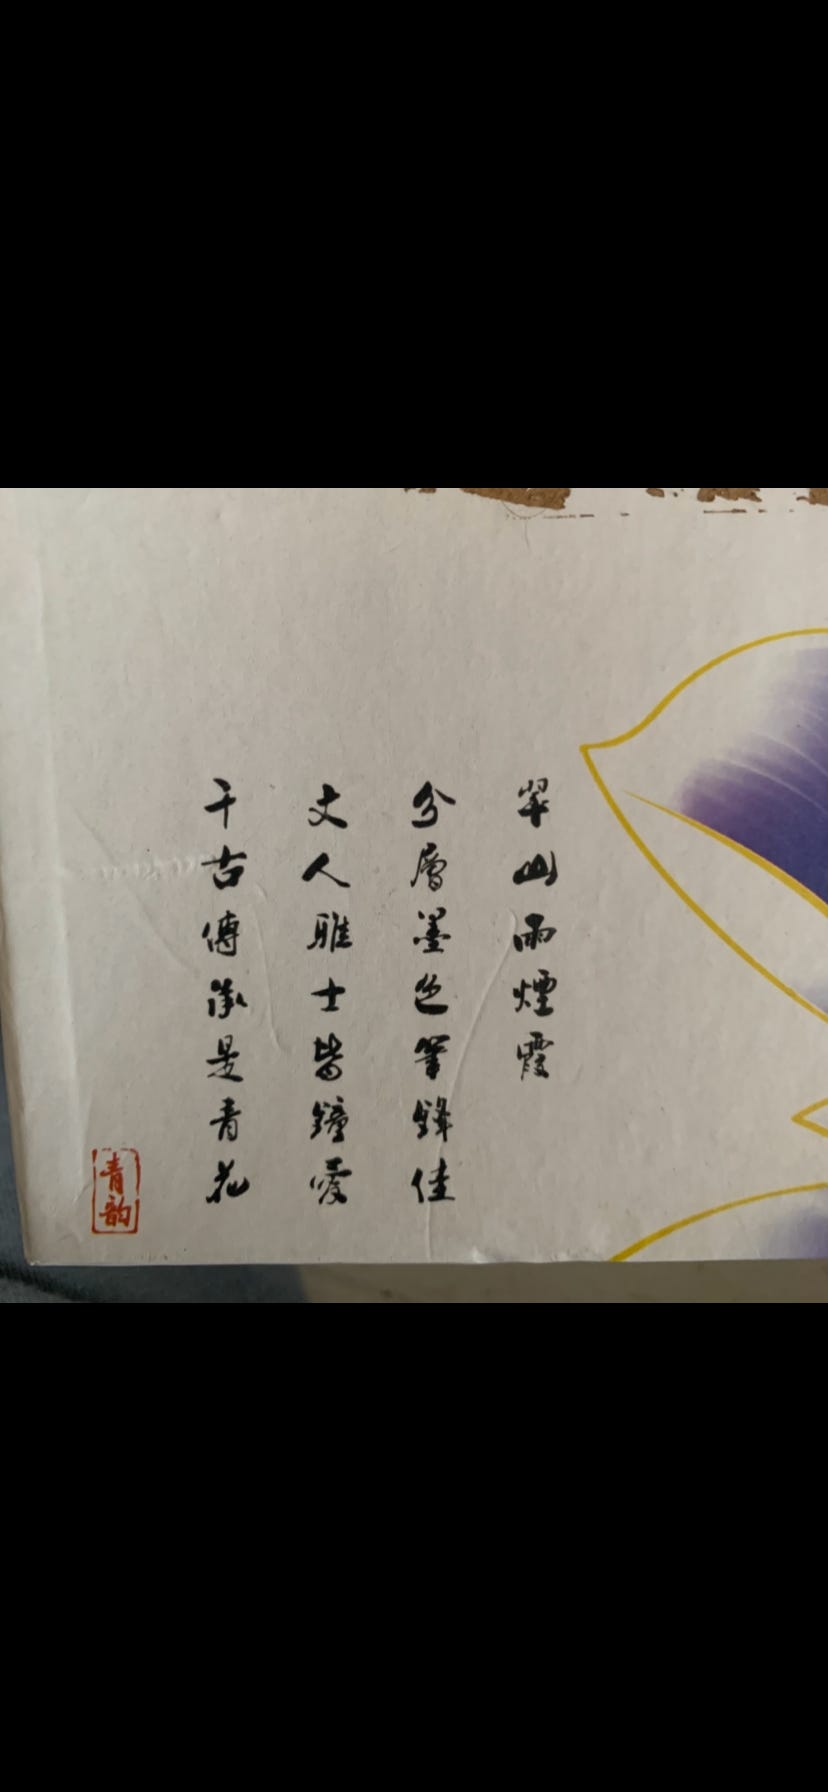 翠山雨煙霞
分層墨色筆鋒佳
文人雅士皆鐘愛
千古傳承是青花
青韵